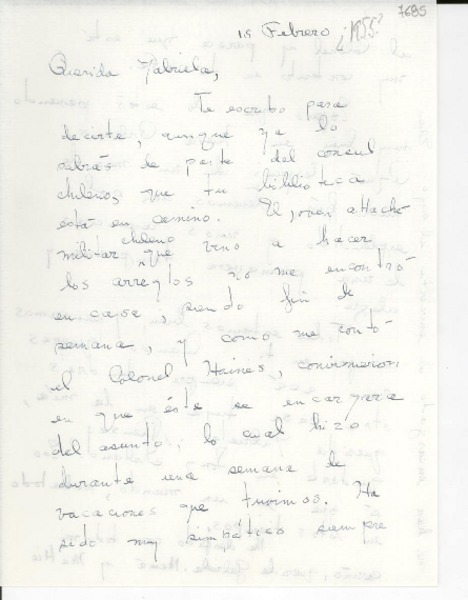 7685
15 Febrero ¿1955?
Querida Gabriela,
Te escribo para
decirte, aunque ya lo
sabrás de parte del consul
chileno, que tu biblioteca
está en camino. El joven attaché
militar chileno que vino a hacer
los arreglos no me encontró
en casa, siendo fin de
semana, y como me contó
el Colonel Haines, convinieron
en que éste se encargaría
del asunto, lo cual hizo
durante una semana de
vacaciones que tuvimos. Ha
sido muy simpático siempre